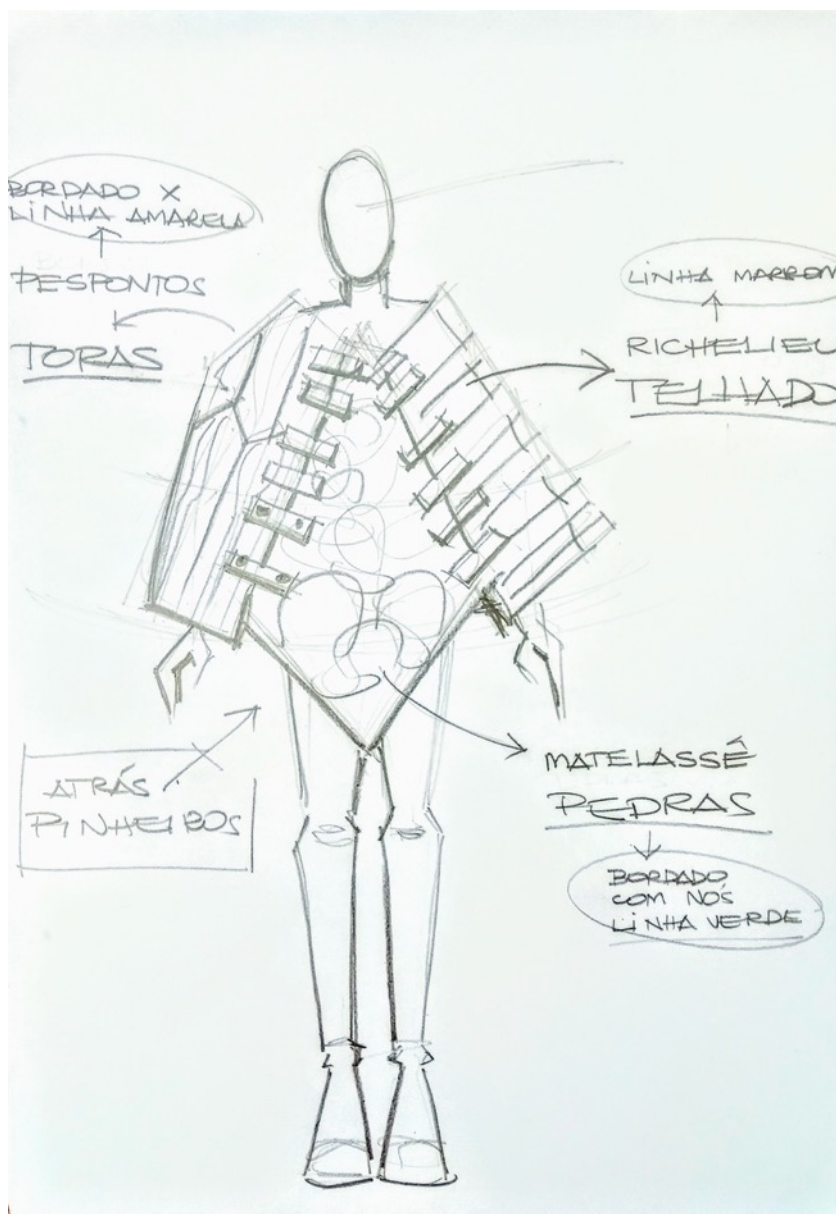 BORDADO X
LINHA AMARELA
PESPONTOS
TORAS
LINHA MARROM
RICHELIEU
TELHADO
ATRÁS
PINHEIROS
MATELASSÊ
PEDRAS
BORDADO
COM NÓS
LINHA VERDE